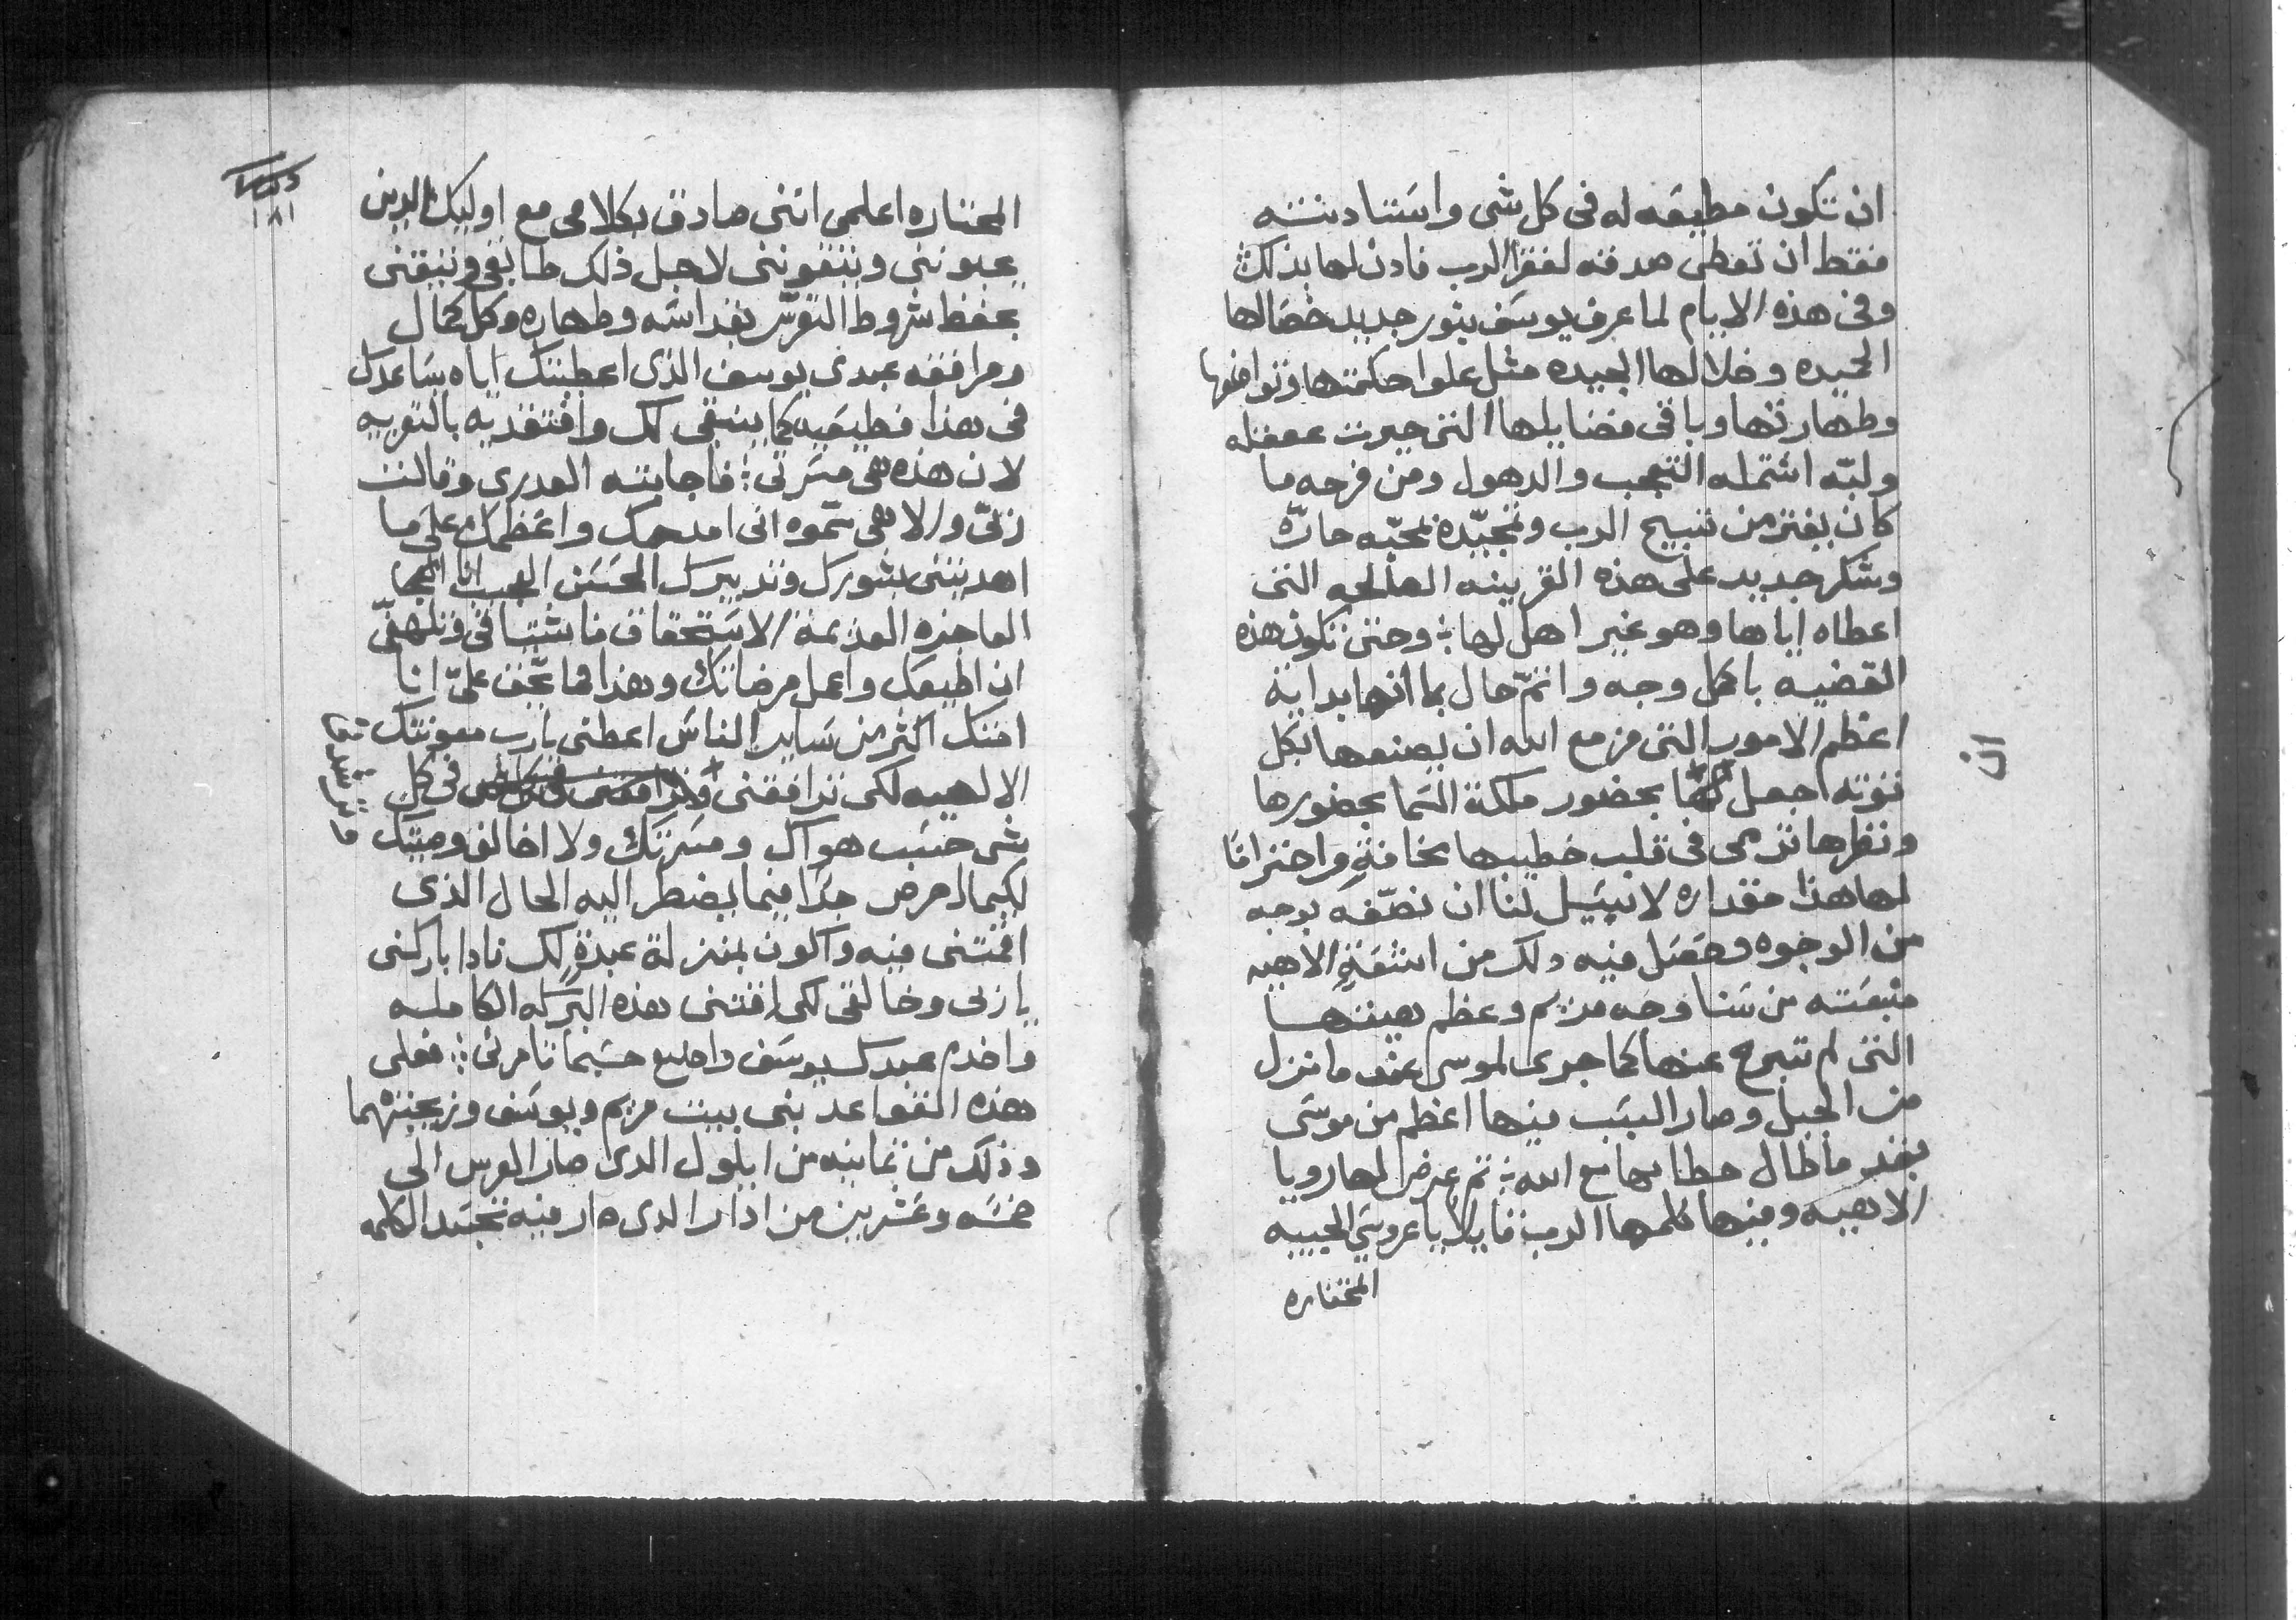 ان تكون مطيعه له فى كل شى واستادنته
فقط ان تعطى صدقه لفقرا الرب فادن لها بذلك
وفى هذه الايام لما عرف يوسف بنور جديد خصالها
الحميده وخلالها الجيده مثل علوا حكمتها وتواضعها
وطهارتها وباقى فضايلها التى حيرت عقله
ولبّه اشتمله التعجب والدهول ومن فرحه ما
كان يفتر من تسبيح الرب وتمجّده بمحبّه حارّه
وشكر جديد على هذه القرينه الصالحه التى
اعطاه اياها وهو غير اهل لها ؛ وحتى تكون هذه
القضيه باكمل وجه واتمّ حال بما انها بداية
اعظم الامور التى مزمع الله ان يصنعها بكل
قوته اجعل بحضور ملكة السما بحضورها
ونظرها ترمى فى قلب خطيبها مخافةٍ واحترامًا
لها هذا مقداره لا يسَل لنا ان نصّفه بوجه
من الوجوه وحصَل فيه دلك من اشعَةٍ الاهيه
منبعَته من سَنا وجه مريم وعظم هيبتها
التى لم تبرح عنها كما جرى لموسى عند ما نزل
من الجبل وصار السَبب فيها اعظم من موسَى
بقدر ما طال خطابها مع الله ؛ ثم عرض لها رويا
الاهيه وفيها كلمها الرب قايلاً يا عروستي الحبيبه
المختاره
ان
١٨١
المختاره اعلمى اننى صادق بكلامى مع اوليك الدين
يحبوننى ويتقوننى لاجل ذلك طابقى وتبقنى
بحفظ شروط التعرّس بقداسَه وطهاره وكل كمال
ومرافقه عبدى يوسف الذى اعطيتك اياه يسَاعدك
فى هذا فطيعَيه كما ينبغى لك وافتقديه بالتعزيه
لان هذه هى مسَرتى ؛ فاجابته العدرى وقالت
ربّى والاهى سّموه انى امدحك واعظمك على ما
اهديتنى بشورك وتدبيرك الحسَن العجيب انا
العاجزه العديمة الاسَتحقاق فاشتياقى وتلهفّى
ان اطيعك واعمل مرضاتك وهذا مما يحّف علىّ انا
امتك اكثر من سَاير الناسَ اعطنى يارب معونتك
الالهيه لكى ترافقنى فى كل
شى حسَب هواك ومسَرتك ولا اخالف وصيتك
لكيما احرص جدًا فيما يضطر اليه الحال الذى
اقمتنى فيه واكون بمنزلة عبدةٍ لك فادا باركنى
يا ربى وخالقى لكى اقتنى بهذه البركه الكامله
واخدم عبدك يوسَف واطيع حسَبما تامرنى ؛ فعلى
هذه القواعد بنى بيت مريم ويوسَف وزيجتهما
وذلك من ثمانيه من ايلول الدى صار العرس الى
خمسَه وعشرين من ادار الدى صار فيه تجسَد الكلمه